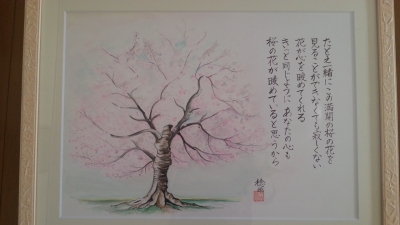 たとえ一緒にこの満開の桜の花を
見ることができなくても寂しくない
花が心を暖めてくれる
きっと同じように あなたの心も
桜の花が暖めていると思うから